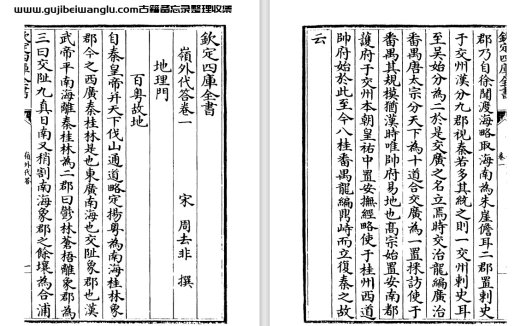 www.gujibeiwanglu.com古籍备忘录整理收集
欽定四庫全書
嶺外代答卷一
宋 周去非 撰
地理門
百粤故地
自秦皇帝并天下伐山通道略定揚粤為南海桂林象
郡今之西廣秦桂林是也東廣南海也交阯象郡也漢
武帝平南海離秦桂林為二郡曰鬱林蒼梧離象郡為
三曰交阯九真日南又稍割南海象郡之餘壤為合浦
欽定四庫全書
嶺外代答
郡乃自徐聞渡海略取海南為朱崖儋耳二郡置刺史
于交州漢分九郡視秦若多其統之則一交州刺史耳
至吳始分為二於是交廣之名立焉時交治龍編廣治
番禺唐太宗分天下為十道合交廣為一置採訪使于
番禺其規模猶漢時唯帥府易地也高宗始置安南都
護府于交州本朝皇祐中置安撫經略使于桂州西道
帥府始於此至今八桂番禺龍編鼎峙而立復秦之故
云